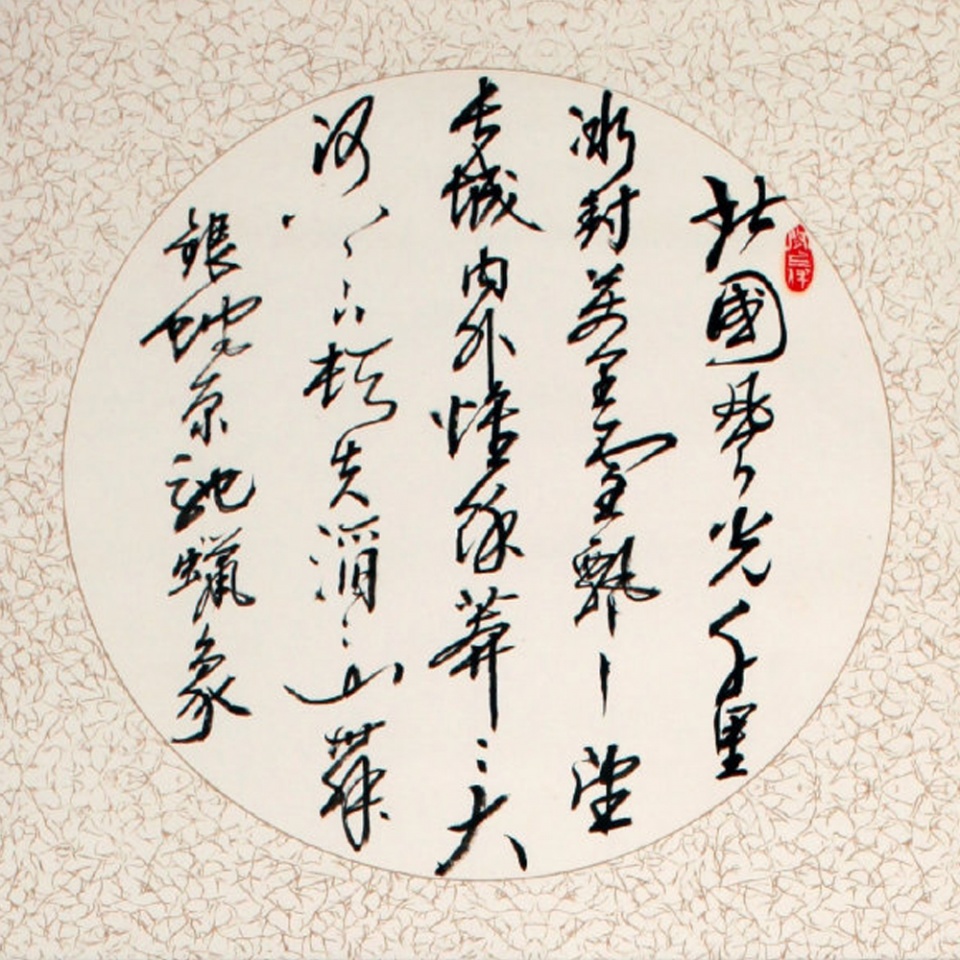 北國風光千里
冰封萬里雪飄望
長城内外惟餘莽〻大
河上下頓失滔〻山舞
銀蛇原馳蠟象